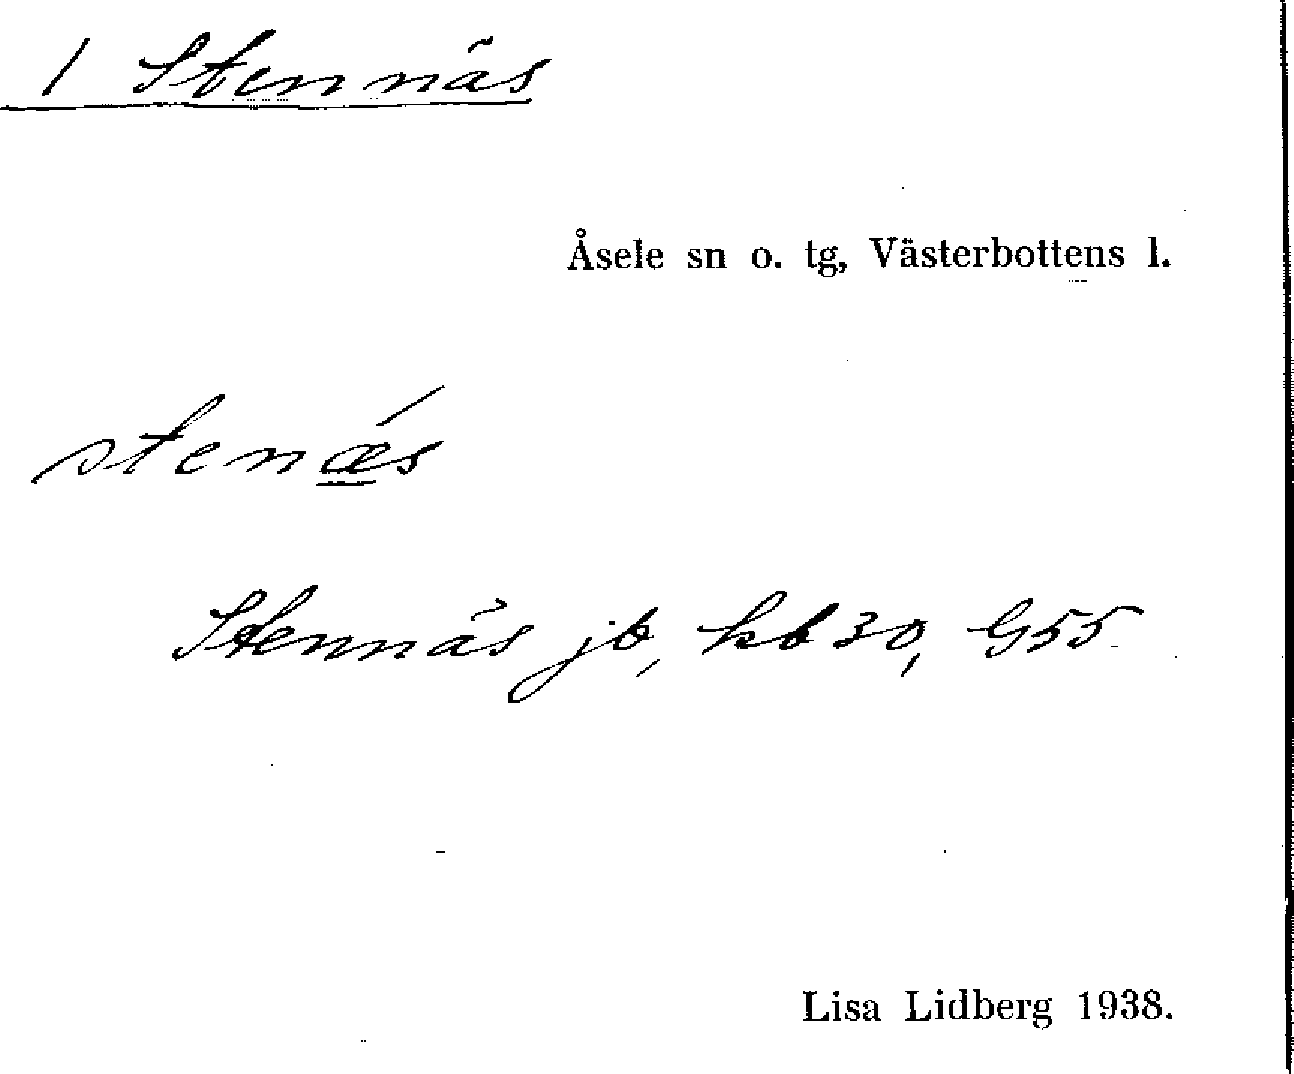 1 Stennäs
Åsele sn o. tg, Västerbottens l.
stenǽs
Stennäs jb, kb 30, G55
Lisa Lidberg 1938.